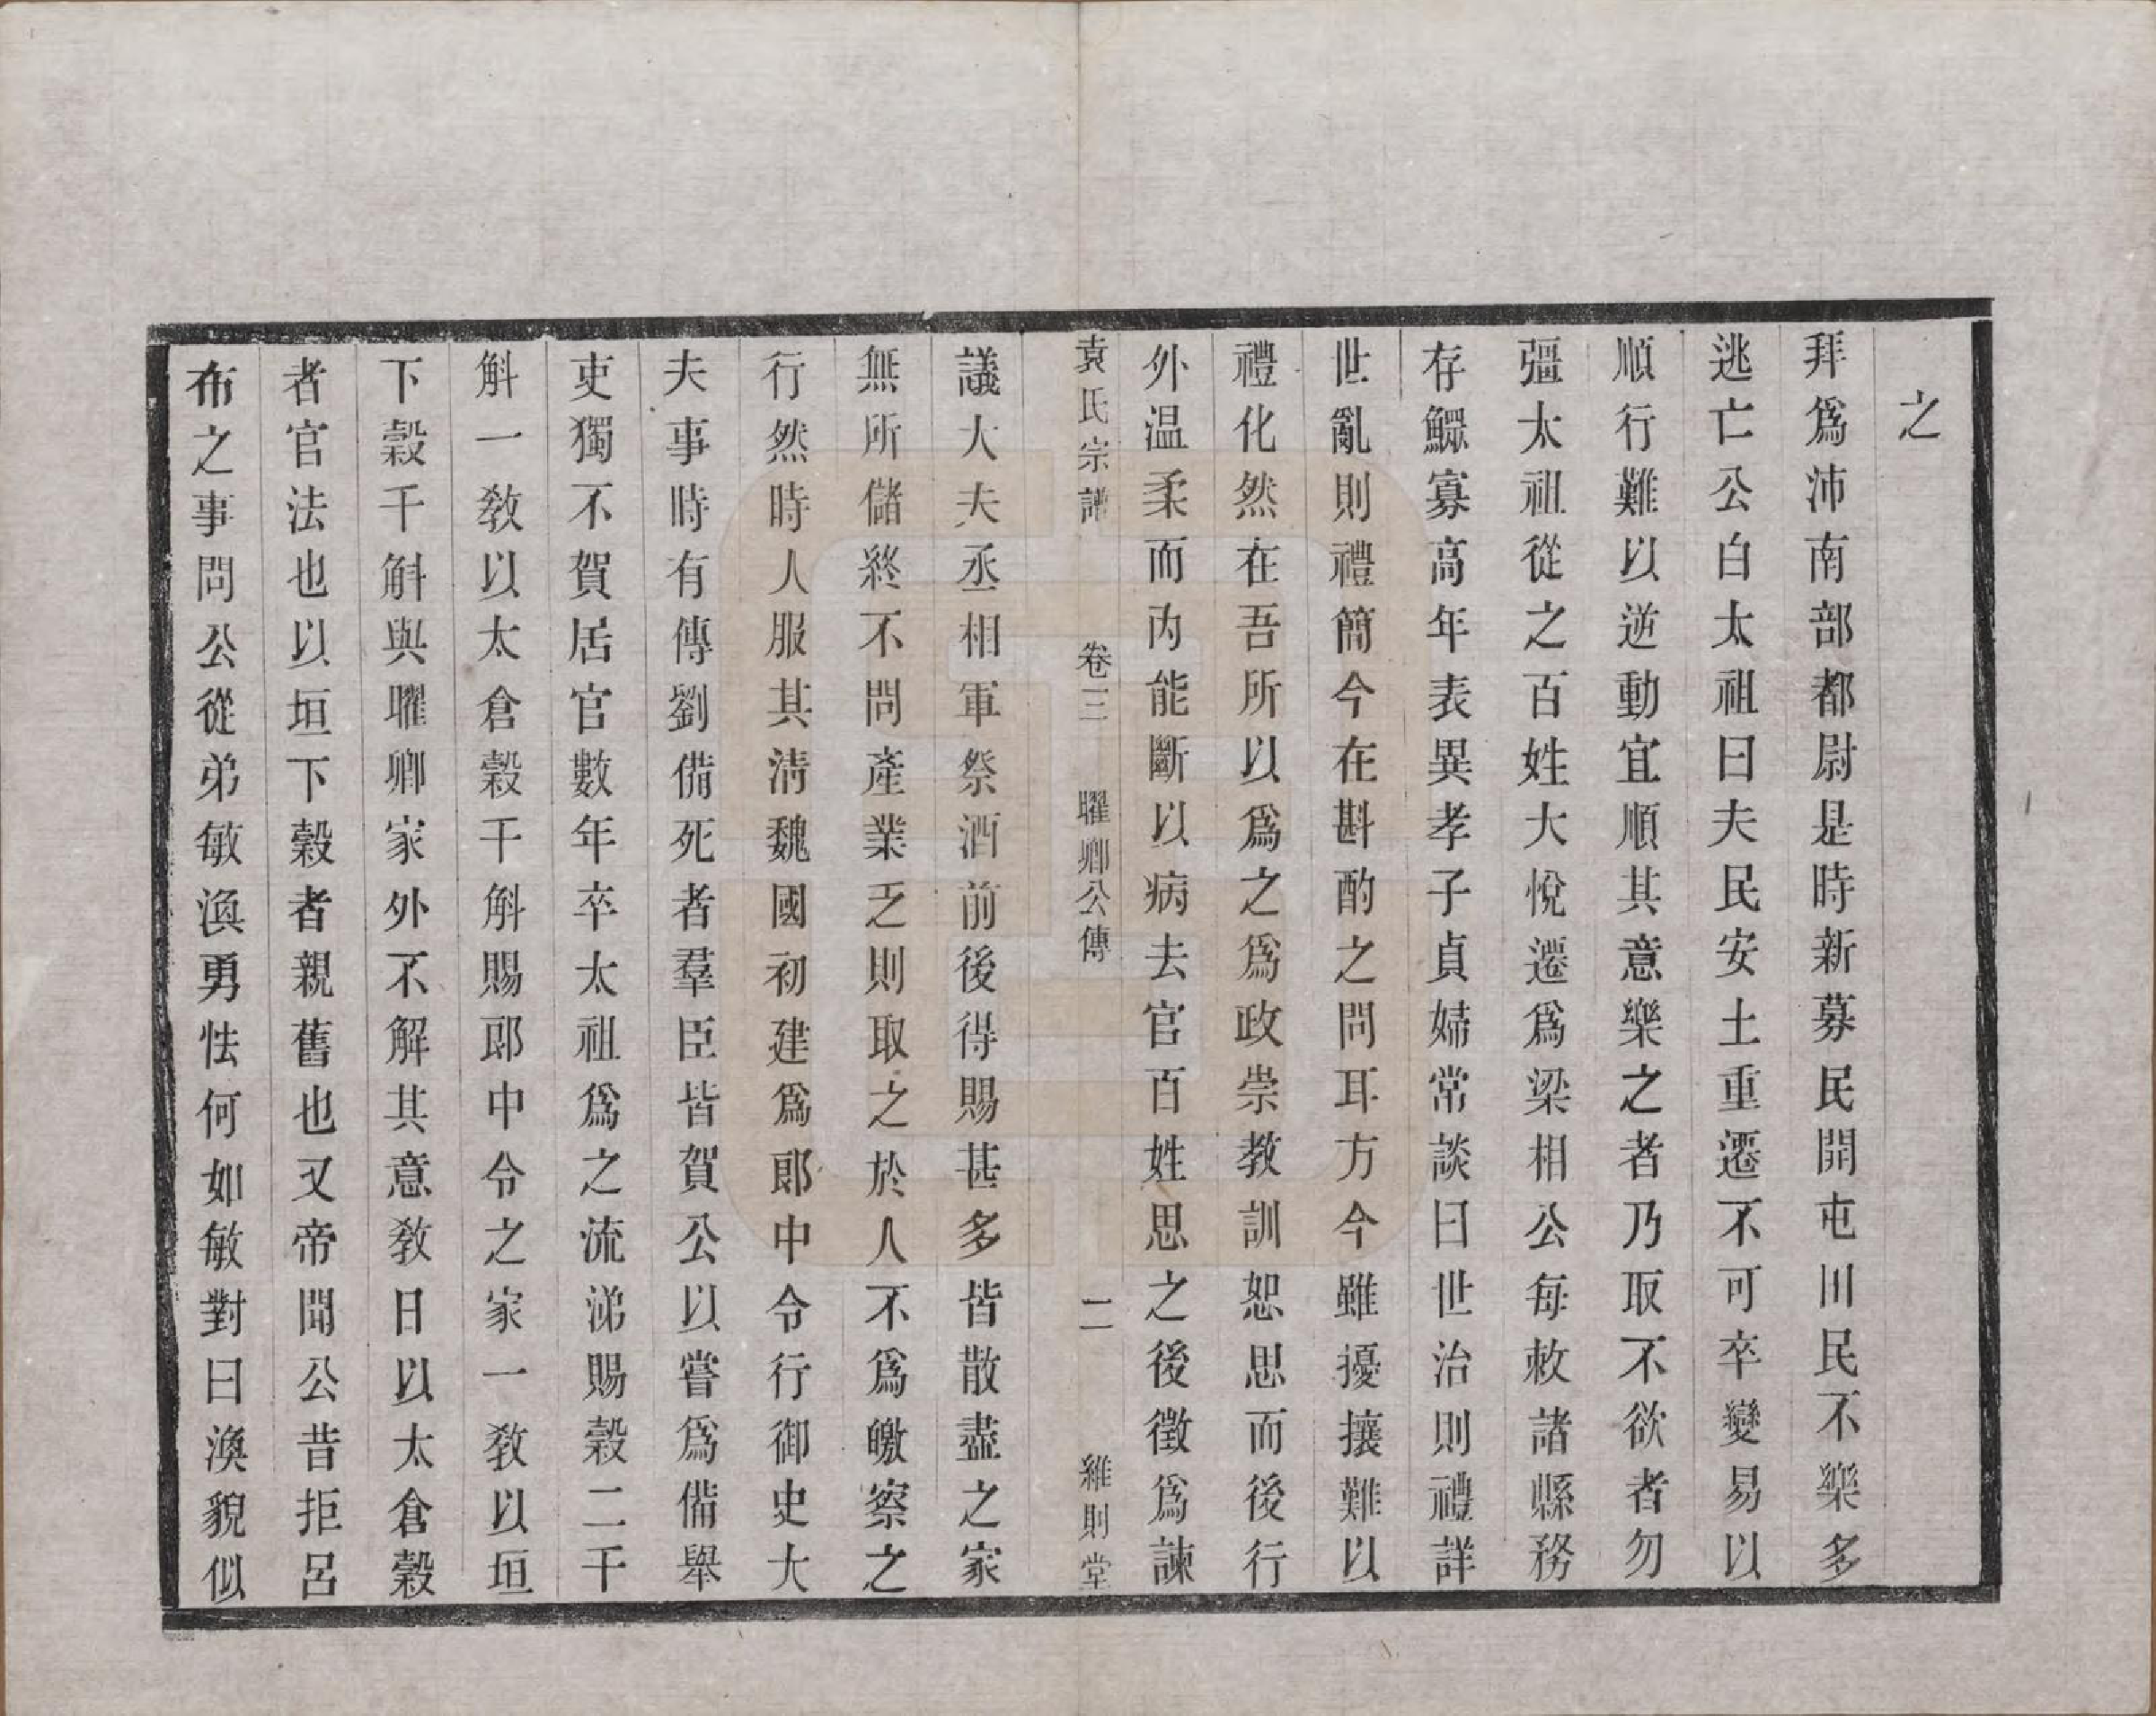 之
拜爲沛南部都尉是時新募民開屯田民不樂多
逃亡公白太祖曰夫民安土重遷不可卒變易以
順行難以逆動宜順其意樂之者乃取不欲者勿
彊太祖從之百姓大悅遷爲梁相公每敕諸縣務
存鰥寡高年表異孝子貞婦常談曰世治則禮詳
世亂則禮簡今在斟酌之問耳方今雖擾攘難以
禮化然在吾所以爲之爲政崇教訓恕思而後行
外温柔而內能斷以病去官百姓思之後徵爲諫
袁氏宗譜 卷三 曜卿公傳 二 維則堂
議大夫丞相軍祭酒前後得賜甚多皆散盡之家
無所儲終不問產業乏則取之於人不爲皦察之
行然時人服其淸魏國初建爲郎中令行御史大
夫事時有傳劉備死者羣臣皆賀公以嘗爲備舉
吏獨不賀居官數年卒太祖爲之流涕賜穀二千
斛一敎以太倉穀千斛賜郎中令之家一敎以垣
下穀千斛與曜卿家外不解其意敎日以太倉穀
者官法也以垣下穀者親舊也又帝聞公昔拒呂
布之事問公從弟敏渙勇怯何如敏對曰渙貌似